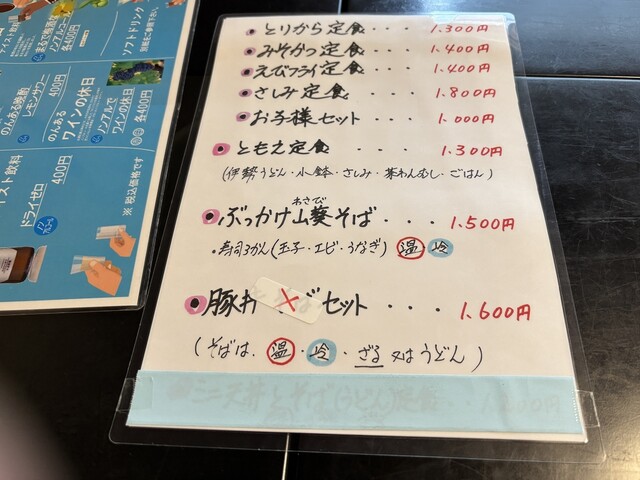 とりから定食・・・1.300円
みそかつ定食・・・1.400円
えびフライ定食・・・1.400円
さしみ定食・・・1.800円
お子様セット・・1.000円
ともえ定食・・・1.300円
(伊勢うどん・小鉢・さしみ・茶わんむし・ごはん)
わさび
ぶっかけ山葵そば・・・1.500円
・寿司3かん(玉子・エビ・うなぎ) 温・冷
豚丼 セット・・・1.600円
(そばは、温・冷・ざる又はうどん)
ソフトドリンク
ノンアルコール
各400円
のんある晩酌
レモンサワー
400円
のんある
ワインの休日
ノンアルで
ワインの休日
各400円
テイスト飲料
ドライゼロ
400円
※税込価格です